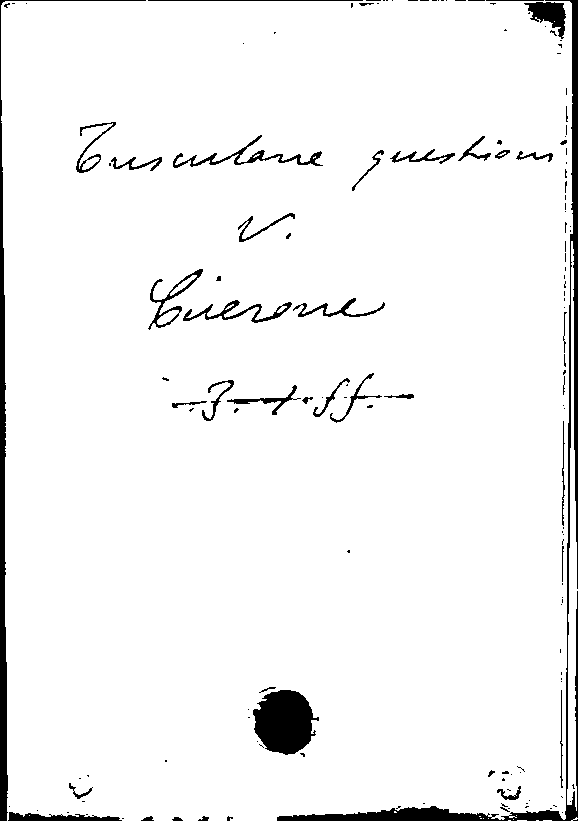 Tusculane questioni
V.
Cicerone